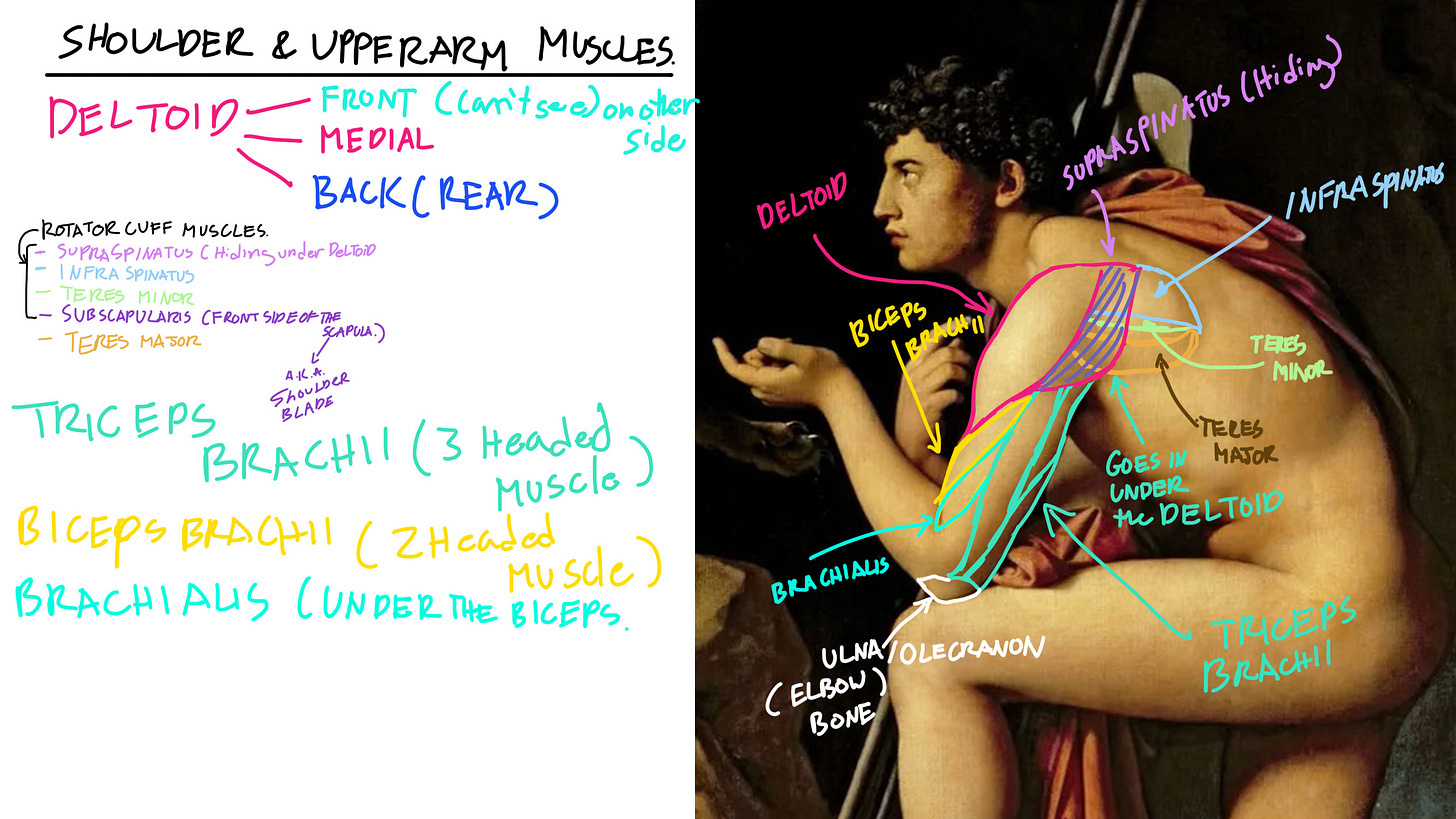 SHOULDER & UPPERARM MUSCLES.
DELTOID
FRONT (Can't see) on other
side
MEDIAL
BACK (REAR)
ROTATOR CUFF MUSCLES.
- SUPRASPINATUS (Hiding under DELTOID
- INFRA SPINATUS
- TERES MINOR
- SUBSCAPULARIS (FRONT SIDE OF THE
SCAPULA.)
- TERES MAJOR
A.K.A.
SHOULDER
BLADE
TRICEPS
BRACHII (3 Headed
Muscle)
BICEPS BRACHII (2 Headed
Muscle)
BRACHIALIS (UNDER THE BICEPS.
SUPRASPINATUS (Hiding)
DELTOID
INFRASPINATUS
BICEPS
BRACHII
TERES
MINOR
TERES
MAJOR
GOES IN
UNDER
the DELTOID
BRACHIALIS
ULNA/OLECRANON
(ELBOW)
BONE
TRICEPS
BRACHII